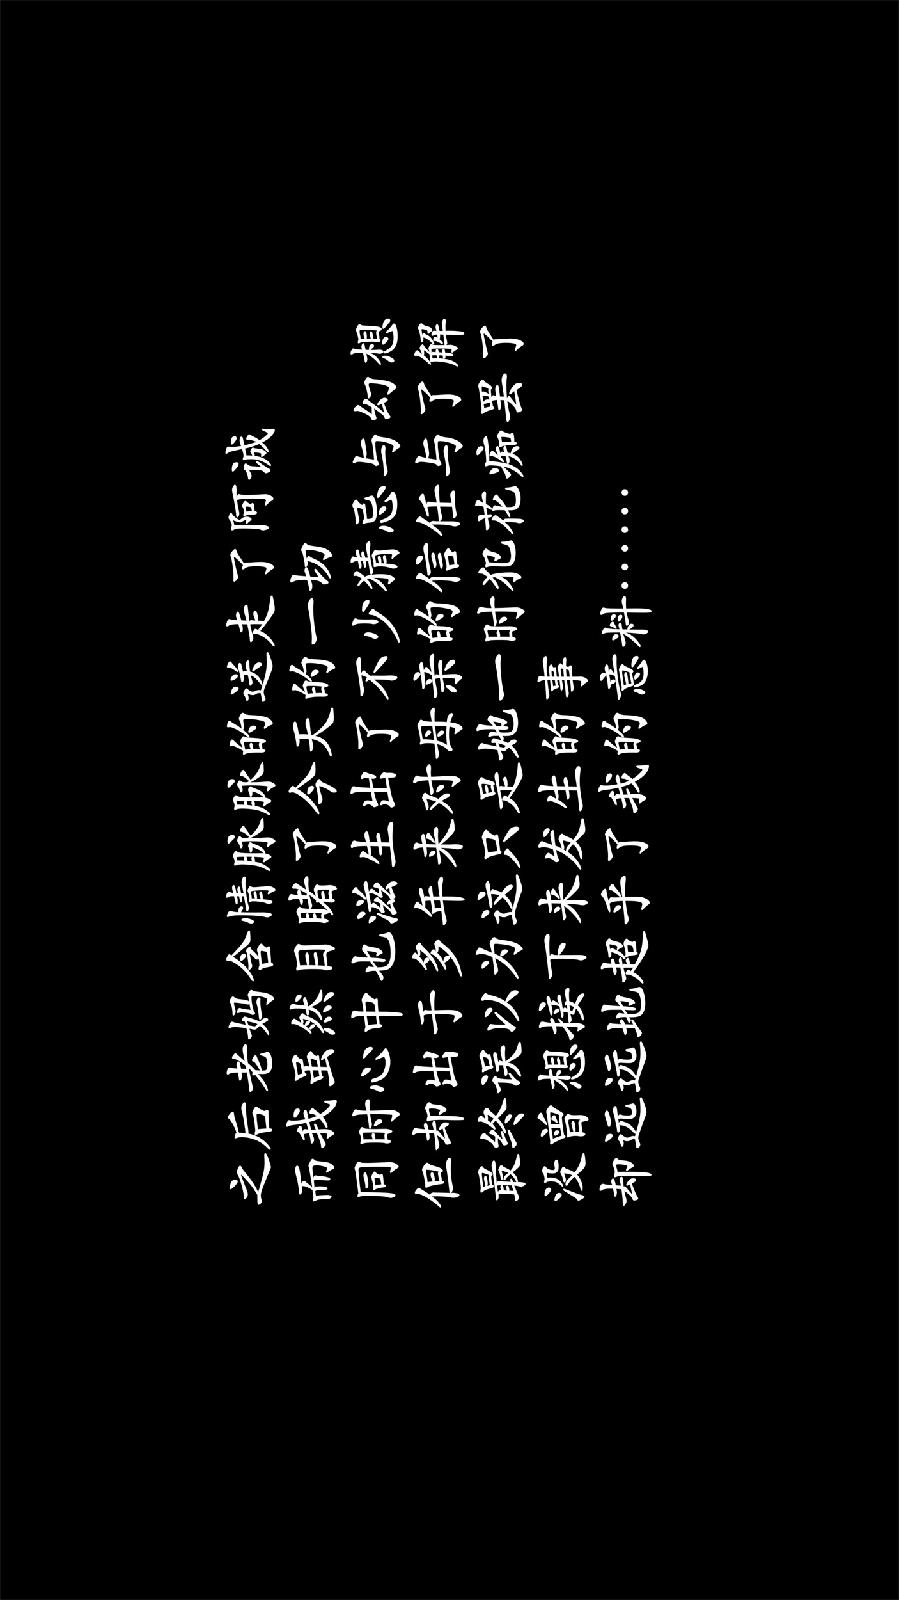 之后老妈含情脉脉的送走了阿诚
而我虽然目睹了今天的一切
同时心中也滋生出了不少猜忌与幻想
但却出于多年来对母亲的信任与了解
最终误以为这只是她一时犯花痴罢了
没曾想接下来发生的事
却远远地超乎了我的意料……